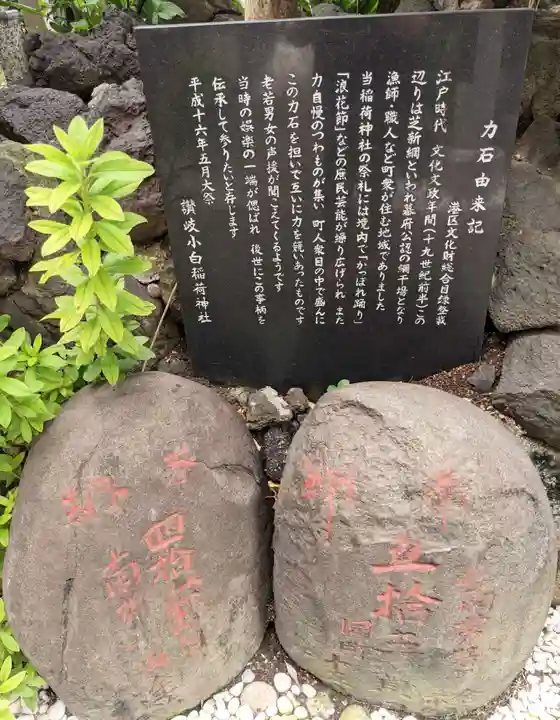 力石由来記
港区文化財総合目録登載
江戸時代 文化文政年間(十九世紀前半)この
辺りは芝新網といわれ幕府公認の網干場となり
漁師・職人など町衆が住む地域でありました
当稲荷神社の祭礼には境内で「かっぽれ踊り」
「浪花節」などの庶民芸能が繰り広げられ また
力自慢のつわものが集い 町人衆囲の中で盛んに
この力石を担いで互いに力を競いあったものです
老若男女の声援が聞こえてくるようです
当時の娯楽の一端が偲ばれ 後世にこの事柄を
伝承して参りたいと存じます
平成十六年五月大祭
讃岐小白稲荷神社
五拾
四拾